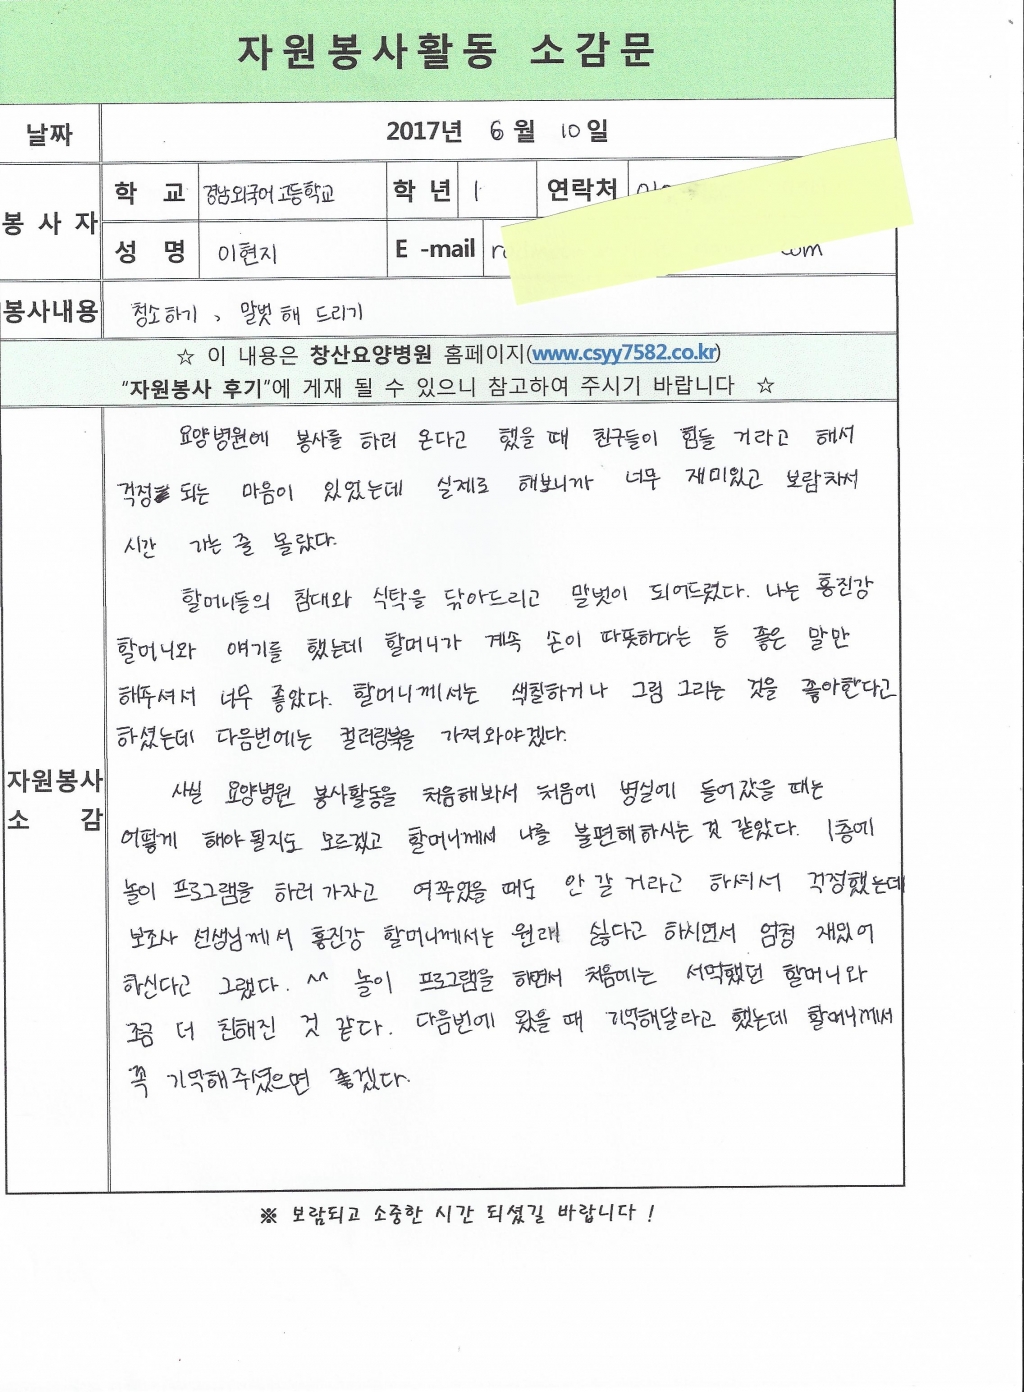 자원봉사활동 소감문
날짜 2017년 6월 10일
봉사자
학 교 경남외국어 고등학교 학 년 1 연락처
성 명 이현지 E -mail
봉사내용 청소하기, 말벗 해 드리기
☆ 이 내용은 창산요양병원 홈페이지(www.csyy7582.co.kr)
"자원봉사 후기"에 게재 될 수 있으니 참고하여 주시기 바랍니다 ☆
자원봉사
소 감
요양병원에 봉사를 하러 온다고 했을 때 친구들이 힘들 거라고 해서
걱정 되는 마음이 있었는데 실제로 해보니까 너무 재미있고 보람차서
시간 가는 줄 몰랐다.
할머니들의 침대와 식탁을 닦아드리고 말벗이 되어드렸다. 나는 홍진강
할머니와 얘기를 했는데 할머니가 계속 손이 따뜻하다는 등 좋은 말만
해주셔서 너무 좋았다. 할머니께서는 색칠하거나 그림 그리는 것을 좋아한다고
하셨는데 다음번에는 컬러링북을 가져와야겠다.
사실 요양병원 봉사활동을 처음해봐서 처음에 병실에 들어갔을 때는
어떻게 해야 될지도 모르겠고 할머니께서 나를 불편해하시는 것 같았다. 1층에
놀이 프로그램을 하러 가자고 여쭈었을 때도 안 갈 거라고 하셔서 걱정했는데
보조사 선생님께서 홍진강 할머니께서는 원래 싫다고 하시면서 엄청 재밌어
하신다고 그랬다. ^^ 놀이 프로그램을 하면서 처음에는 서먹했던 할머니와
조금 더 친해진 것 같다. 다음번에 왔을 때 기억해달라고 했는데 할머니께서
꼭 기억해주셨으면 좋겠다.
※ 보람되고 소중한 시간 되셨길 바랍니다 !